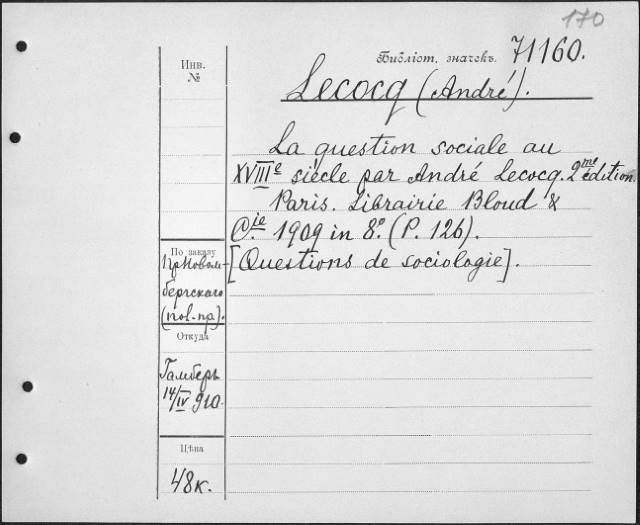 170
Библіот. значекъ. 71160.
Инв.
№
Lecocq (André).
La question sociale au
XVIIIe siècle par André Lecocq. 2me édition.
Paris. Librairie Bloud &
Cie. 1909 in 8o. (P. 126).
[Questions de sociologie].
По заказу
Пр. Новом-
бергскаго
(пол.-пр).
Откуда
Гамберъ
14/IV 910.
Цѣна
48к.